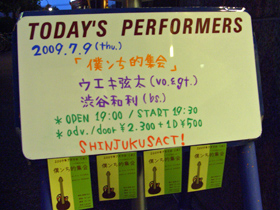 TODAY'S PERFORMERS
2009.7.9 (thu.)
「僕ンち的集会」
ウエキ弦太 (vo.&gt.)
渋谷和利 (bs.)
* OPEN 19:00 / START 19:30
* adv./door ¥2.300 + 1D ¥500
SHINJUKU SACT!
僕ンち的集会
僕ンち的集会
僕ンち的集会
僕ンち的集会